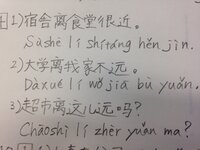 1)宿舍离食堂很近。
Sùshè lí shítáng hěn jìn.
2)大学离我家不远。
Dàxué lí wǒ jiā bù yuǎn.
3)超市离这儿远吗?
Chāoshì lí zhèr yuǎn ma?